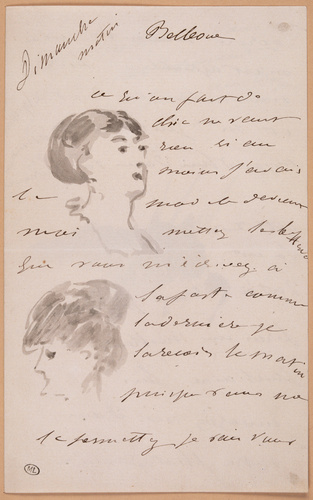 Dimanche
matin
Bellevue
ce qu'on fait de
chic ne vaut
rien si au
moins j'avais
le modele devant
moi mettez la lettre
que vous m'ecrivez à
la poste comme
la dernière je
la reçois le matin
puisque vous ne
le permettez je vais vous